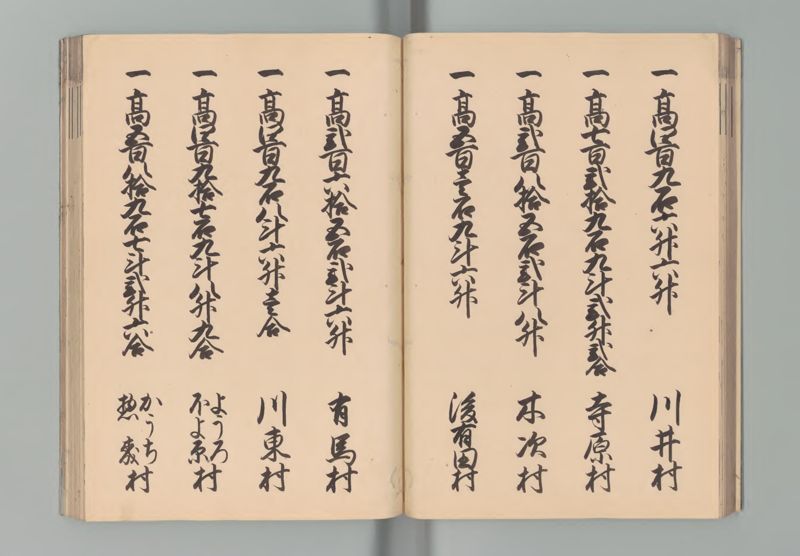 一 高四百九石六斗六升 川井村
一 高七百弐拾九石九斗弐升弐合 寺原村
一 高弐百八拾五石弐斗八升 木次村
一 高五百壱石九斗六升 後有田村
一 高弐百六拾五石弐斗六升 有馬村
一 高四百九石八斗六升壱合 川東村
一 高四百九拾七石九斗八升九合 ようろ 村
一 高五百八拾九石七斗弐升六合 かうち 惣 村